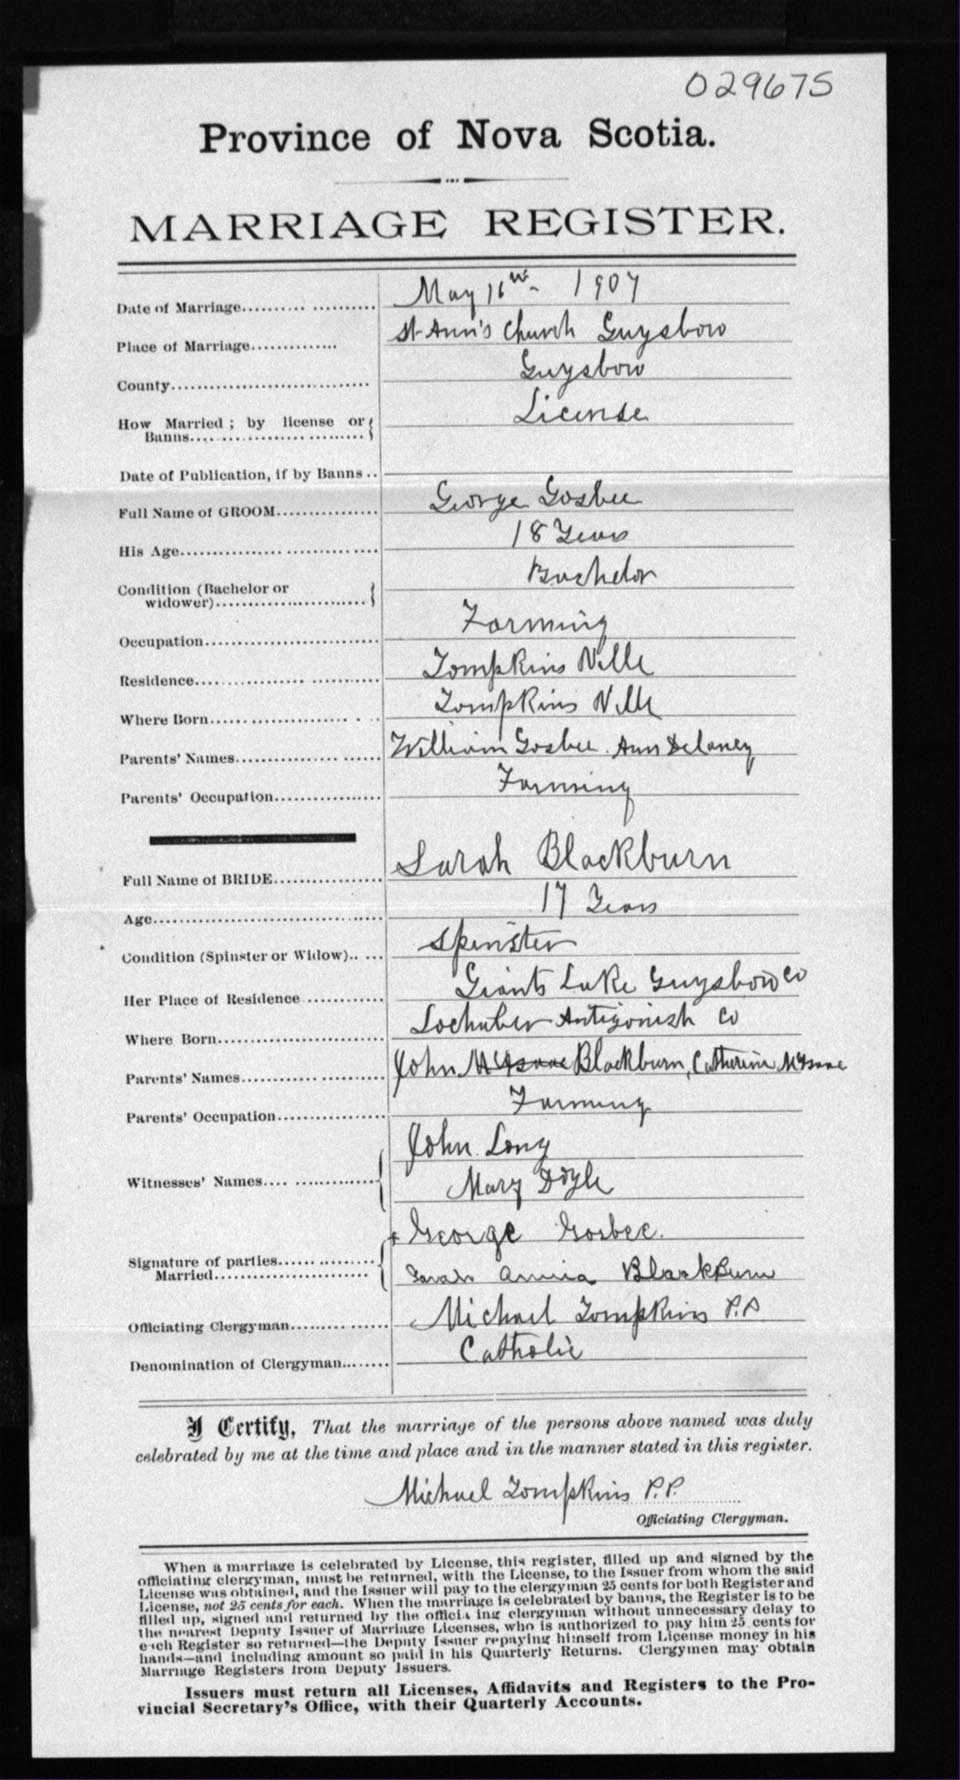 029675
Province of Nova Scotia.
MARRIAGE REGISTER.
Date of Marriage May 16th 1907
Place of Marriage St Ann's Church Guysboro
County Guysboro
How Married; by license or Banns License
Date of Publication, if by Banns
Full Name of GROOM George Gosbee
His Age 18 Years
Condition (Bachelor or widower) Bachelor
Occupation Farming
Residence Tompkins Ville
Where Born Tompkins Ville
Parents' Names William Gosbee. Ann Delaney
Parents' Occupation Farming
Full Name of BRIDE Sarah Blackburn
Age 17 Years
Condition (Spinster or Widow) Spinster
Her Place of Residence Giants Lake Guysboro Co
Where Born Lochaber Antigonish Co
Parents' Names John McIsaac Blackburn, Catherine McIsaac
Parents' Occupation Farming
Witnesses' Names John Long
Mary Doyle
Signature of parties Married + George Gosbee.
Sarah Annia Blackburn
Officiating Clergyman Michael Tompkins P.P
Denomination of Clergyman Catholic
I Certify, That the marriage of the persons above named was duly
celebrated by me at the time and place and in the manner stated in this register.
Michael Tompkins P.P.
Officiating Clergyman.
When a marriage is celebrated by License, this register, filled up and signed by the
officiating clergyman, must be returned, with the License, to the Issuer from whom the said
License was obtained, and the Issuer will pay to the clergyman 25 cents for both Register and
License, not 25 cents for each. When the marriage is celebrated by banns, the Register is to be
filled up, signed and returned by the officiating clergyman without unnecessary delay to
the nearest Deputy Issuer of Marriage Licenses, who is authorized to pay him 25 cents for
each Register so returned—the Deputy Issuer repaying himself from License money in his
hands—and including amount so paid in his Quarterly Returns. Clergymen may obtain
Marriage Registers from Deputy Issuers.
Issuers must return all Licenses, Affidavits and Registers to the Pro-
vincial Secretary's Office, with their Quarterly Accounts.